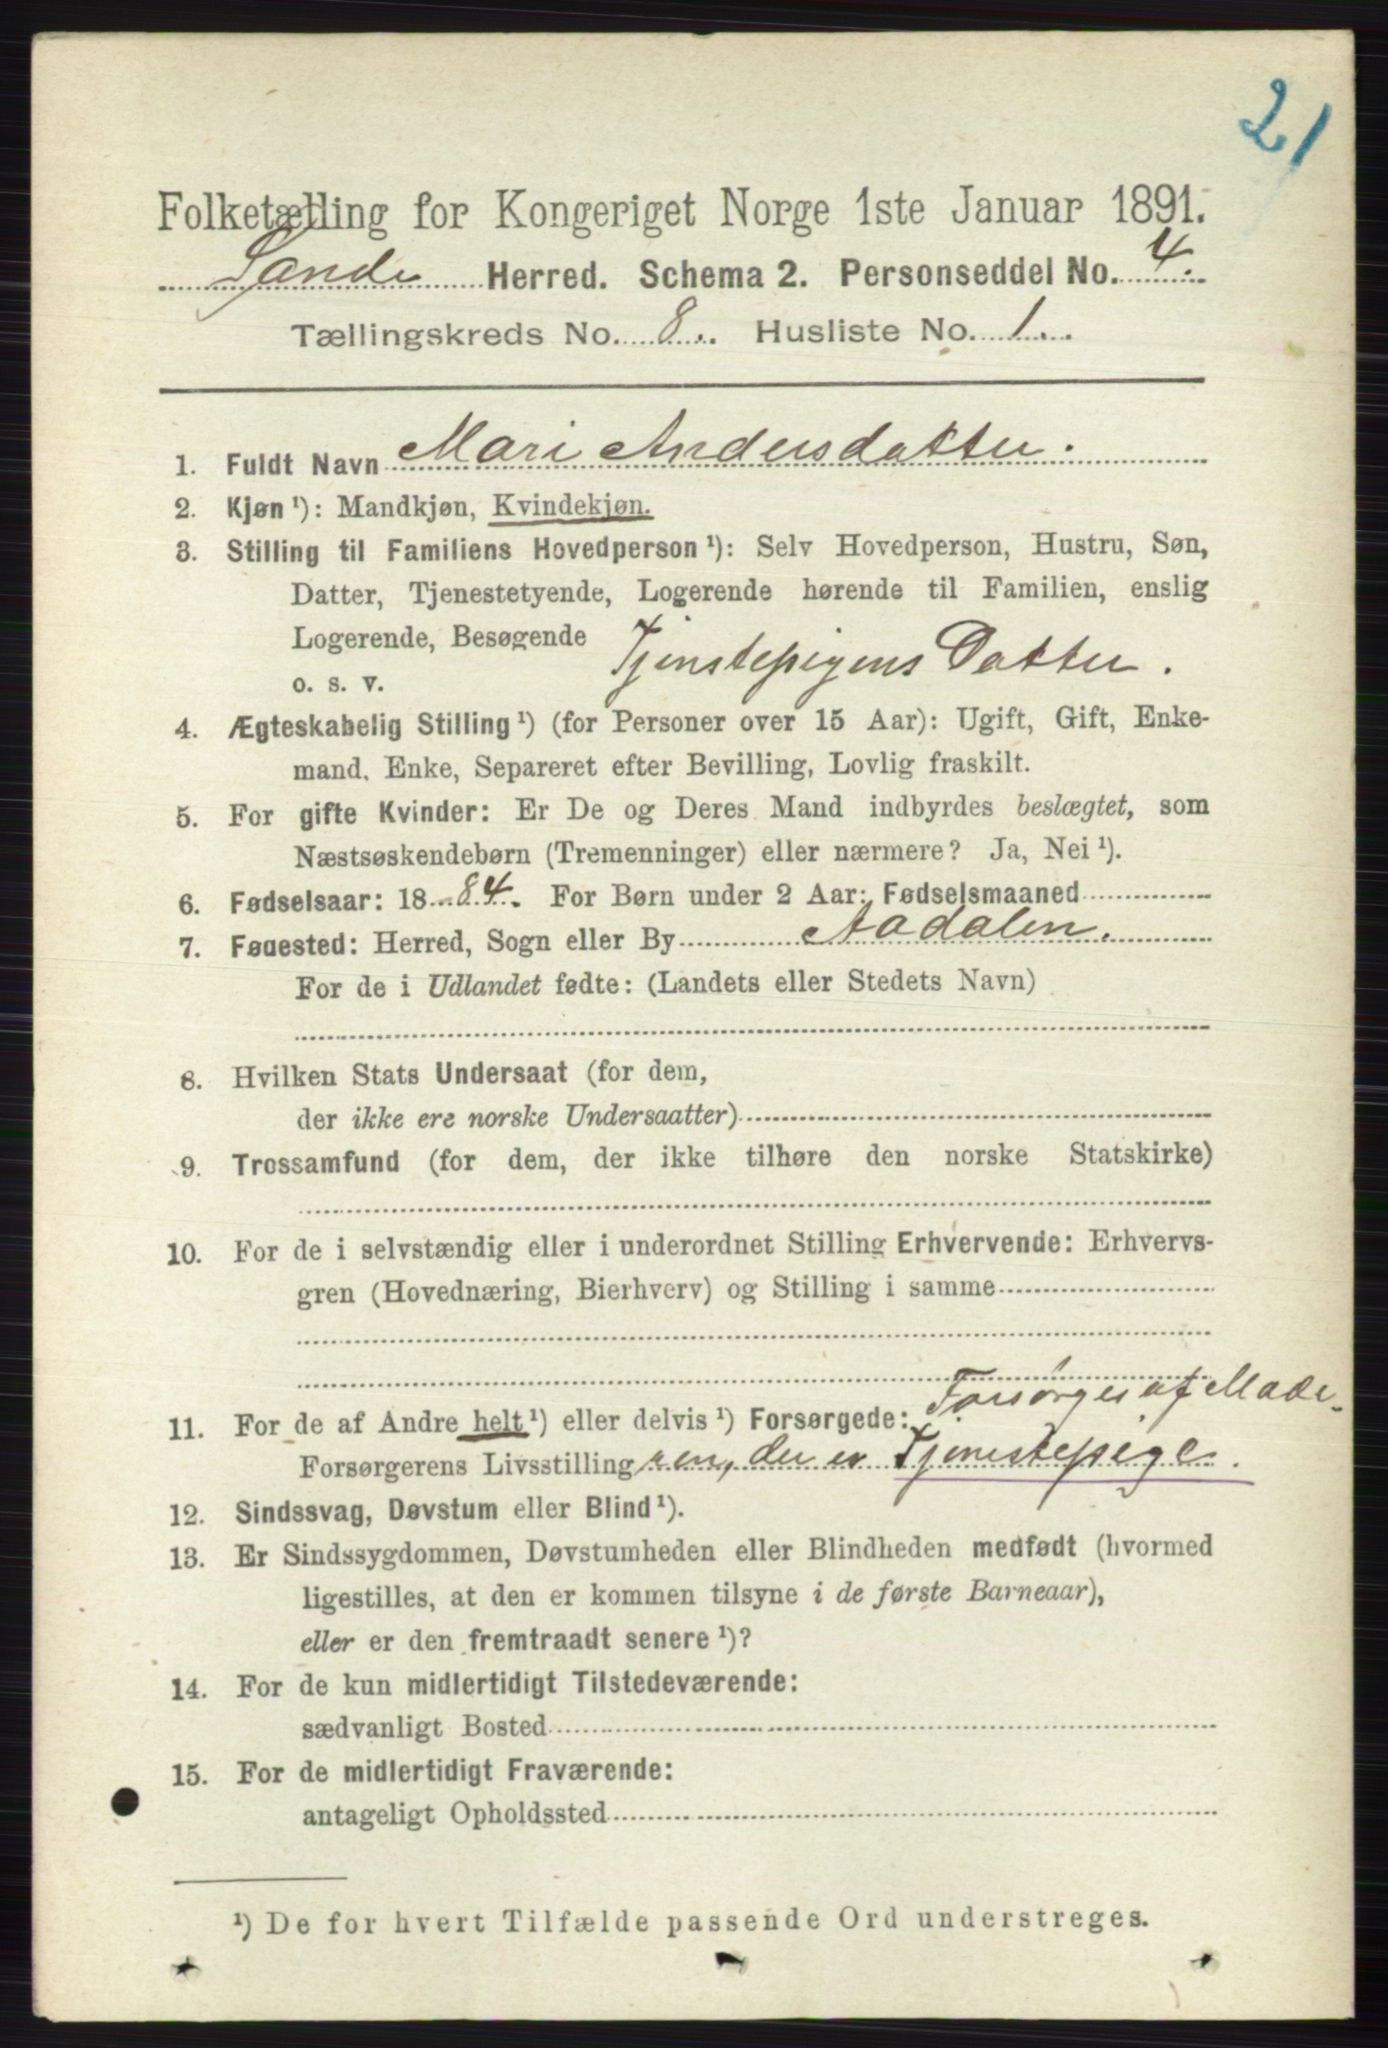 21
Folketælling for Kongeriget Norge 1ste Januar 1891.
Sande Herred. Schema 2. Personseddel No. 4.
Tællingskreds No. 8. Husliste No. 1.
1. Fuldt Navn Mari Andersdatter.
2. Kjøn ¹): Mandkjøn, Kvindekjøn.
3. Stilling til Familiens Hovedperson ¹): Selv Hovedperson, Hustru, Søn,
Datter, Tjenestetyende, Logerende hørende til Familien, enslig
Logerende, Besøgende
o. s. v. Tjenstepigens Datter.
4. Ægteskabelig Stilling ¹) (for Personer over 15 Aar): Ugift, Gift, Enke-
mand, Enke, Separeret efter Bevilling, Lovlig fraskilt.
5. For gifte Kvinder: Er De og Deres Mand indbyrdes beslægtet, som
Næstsøskendebørn (Tremenninger) eller nærmere? Ja, Nei ¹).
6. Fødselsaar: 1884. For Børn under 2 Aar: Fødselsmaaned
7. Fødested: Herred, Sogn eller By Aadalen.
For de i Udlandet fødte: (Landets eller Stedets Navn)
8. Hvilken Stats Undersaat (for dem,
der ikke ere norske Undersaatter)
9. Trossamfund (for dem, der ikke tilhøre den norske Statskirke)
10. For de i selvstændig eller i underordnet Stilling Erhvervende: Erhvervs-
gren (Hovednæring, Bierhverv) og Stilling i samme
11. For de af Andre helt ¹) eller delvis ¹) Forsørgede: Forsørges af Mode-
Forsørgerens Livsstilling ren, der er Tjenstepige.
12. Sindssvag, Døvstum eller Blind ¹).
13. Er Sindssygdommen, Døvstumheden eller Blindheden medfødt (hvormed
ligestilles, at den er kommen tilsyne i de første Barneaar),
eller er den fremtraadt senere ¹)?
14. For de kun midlertidigt Tilstedeværende:
sædvanligt Bosted
15. For de midlertidigt Fraværende:
antageligt Opholdssted
¹) De for hvert Tilfælde passende Ord understreges.